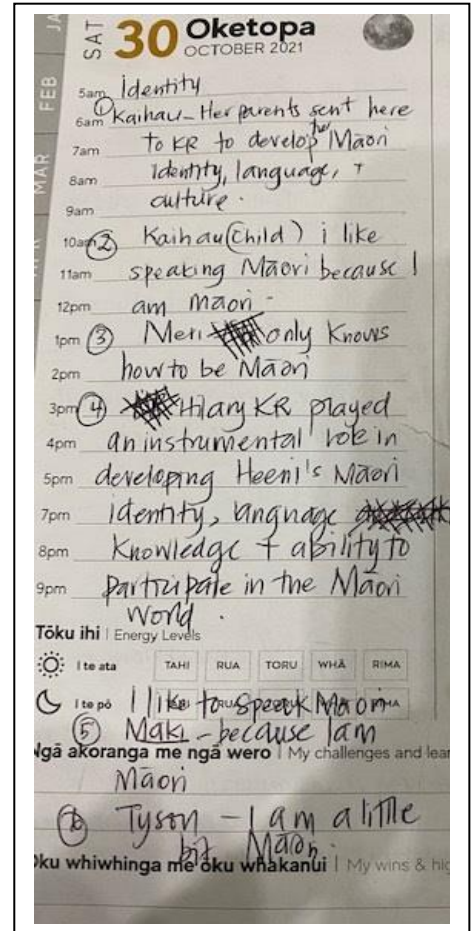 JA
FEB
MAR
SAT 30 Oketopa
OCTOBER 2021
5am Identity
6am ① Kaihau - Her parents sent here
7am to KR to develop her Māori
8am Identity, language, +
9am culture.
10am ② Kaihau (Child) i like
11am speaking Māori because I
12pm am māori -
1pm ③ Meri only knows
2pm how to be Māori
3pm ④ Hilary KR played
4pm an instrumental role in
5pm developing Heeni's Māori
7pm identity, language
8pm knowledge + ability to
9pm participate in the Māori
World.
Tōku ihi | Energy Levels
I te ata TAHI RUA TORU WHĀ RIMA
I te pō I like to speak Māori
⑤ Maki - because I am
Ngā akoranga me ngā wero | My challenges and lear
Māori
⑥ Tyson - I am a little
bit Māori.
Ōku whiwhinga me ōku whakanui | My wins & hig